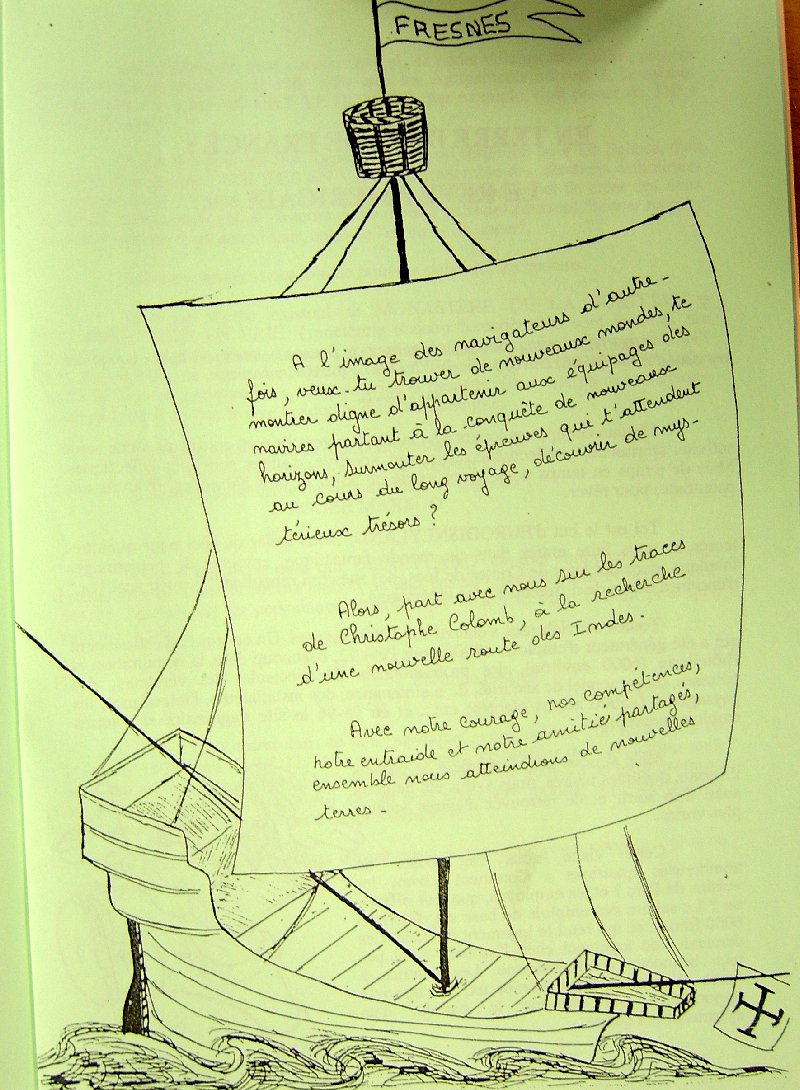 FRESNES
A l'image des navigateurs d'autre-
fois, veux-tu trouver de nouveaux mondes, te
montrer digne d'appartenir aux équipages des
navires partant à la conquête de nouveaux
horizons, surmonter les épreuves qui t'attendent
au cours du long voyage, découvrir de mys-
térieux trésors ?
Alors, part avec nous sur les traces
de Christophe Colomb, à la recherche
d'une nouvelle route des Indes.
Avec notre courage, nos compétences,
notre entraide et notre amitié partagés,
ensemble nous atteindrons de nouvelles
terres.